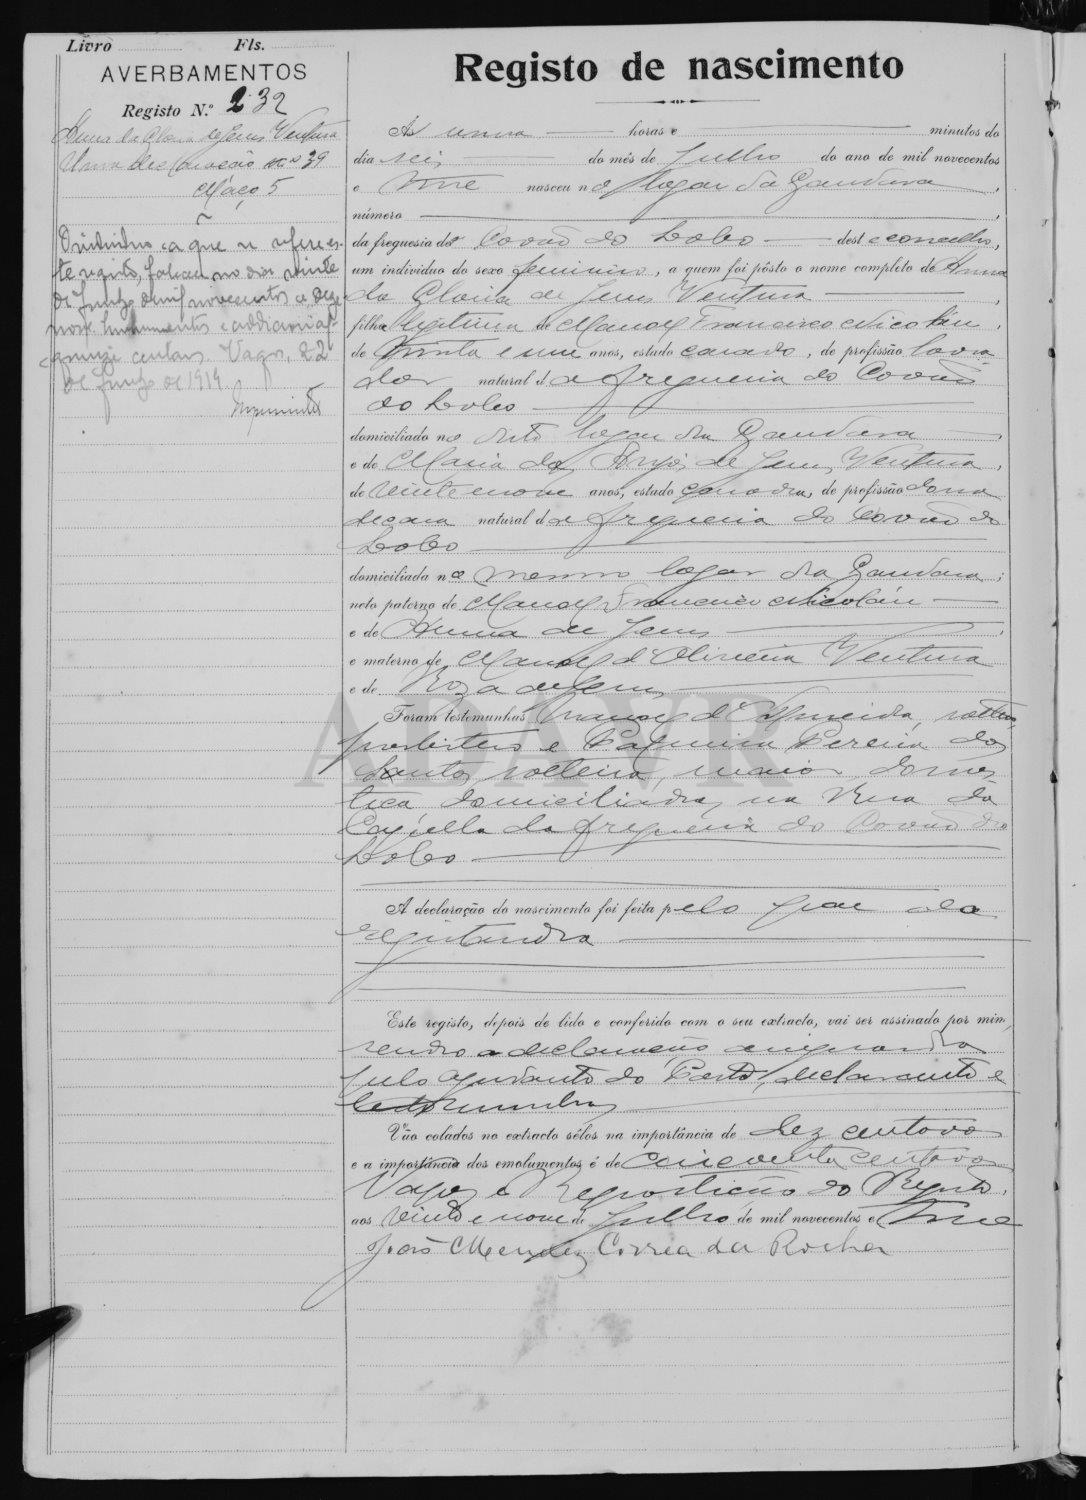 Livro Fls.
AVERBAMENTOS
Registo N.º 232
Anna da Gloria de Jesus Ventura
Uma declaração nº 39
Maço 5
O individuo a que se refere es-
te registo, faleceu no dia vinte
de Junho de mil novecentos e deze-
nove. Emolumentos e addicionaes
quinze centavos. Vagos, 22
de Junho de 1919.
Registo de nascimento
Ás uma horas e minutos do
dia seis do mês de Julho do ano de mil novecentos
e nasceu no logar da Gandara,
número
da freguesia do Covão do Lobo deste concelho,
um individuo do sexo feminino, a quem foi pôsto o nome completo de Anna
da Gloria de Jesus Ventura
filha legitima de Manoel Francisco Nicolau,
de trinta e um anos, estado casado, de profissão lavra-
dor natural da freguesia do Covão
do Lobo
domiciliado no dito logar da Gandara
e de Maria dos Anjos de Jesus Ventura,
de vinte e nove anos, estado casada, de profissão dona
de casa natural da freguesia do Covão do
Lobo
domiciliada no mesmo logar da Gandara;
neto paterno de Manoel Francisco Nicolau
e de Anna de Jesus
e materno de Manoel d'Oliveira Ventura
e de Roza de Jesus
ADAVR
Foram testemunhas Manoel d'Almeida, solteiro,
presbitero e Palmira Pereira dos
Santos, solteira, maior, domes-
tica, domiciliados na Rua da
Capella da freguesia do Covão do
Lobo
A declaração do nascimento foi feita pelo pae da
registanda
Este registo, depois de lido e conferido com o seu extracto, vai ser assinado por mim,
sendo a declaração assignada
pelo ajudante do Posto, declarante e
testemunhas
Vão colados no extracto sêlos na importância de dez centavos
e a importância dos emolumentos é de cincoenta centavos
Vagos e Repartição do Registo,
aos vinte e nove de Julho de mil novecentos e
João Mendes Correa da Rocha